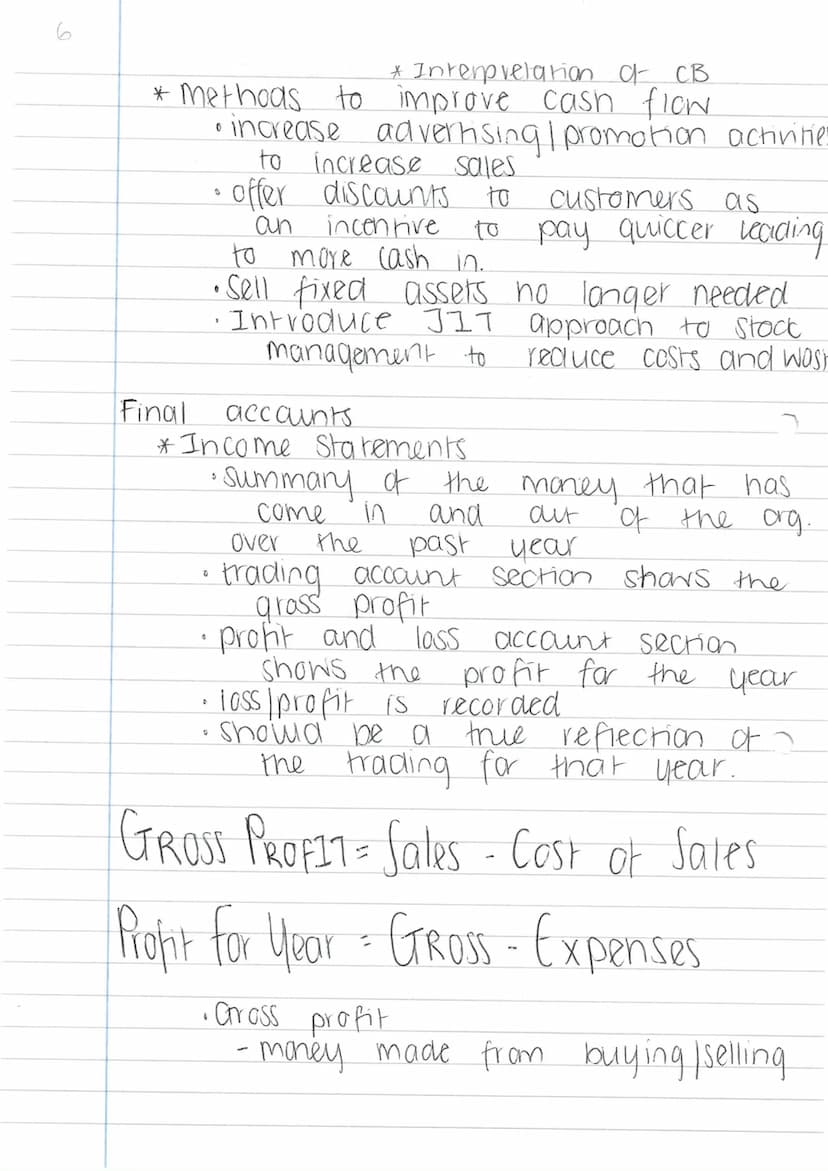 6
* Interpretation of CB
* Methods to improve cash flow
• increase advertising/promotion activities
to increase sales
• offer discounts to customers as
an incentive to pay quiccer leading
to more cash in.
• Sell fixed assets no longer needed
• Introduce JIT approach to stock
management to reduce costs and wast
Final accounts
* Income Statements
• summary of the money that has
come in and out of the org.
over the past year
• trading account section shows the
gross profit
• profit and loss account section
shows the profit for the year
• loss/profit is recorded
• should be a true reflection of
the trading for that year.
GROSS PROFIT = Sales - Cost of Sales
Profit for Year = GROSS - Expenses
• Gross profit
- money made from buying/selling